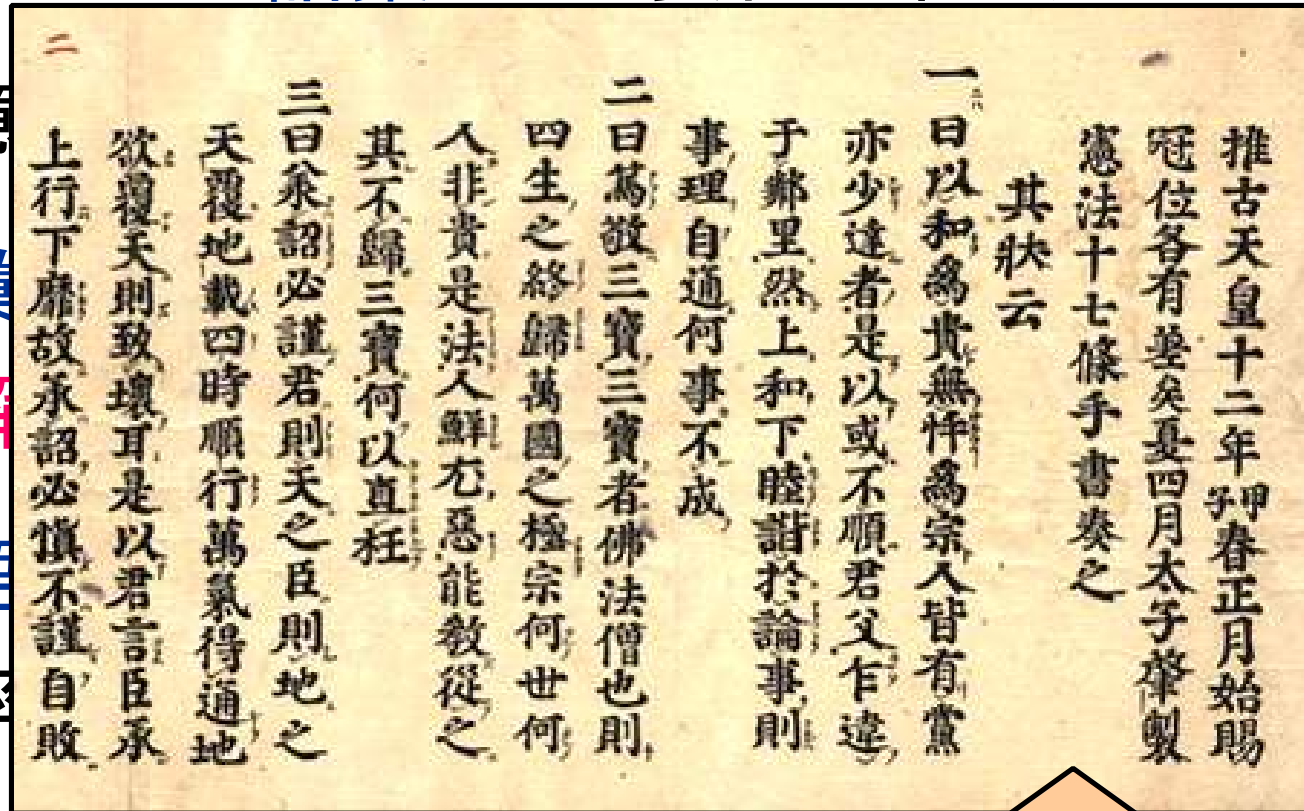 推古天皇十二年甲子春正月始賜
冠位各有差矣夏四月太子肇製
憲法十七條手書奏之
其狀云
一曰以和爲貴無忤爲宗人皆有黨
亦少達者是以或不順君父乍違
于鄰里然上和下睦諧於論事則
事理自通何事不成
二曰篤敬三寶三寶者佛法僧也則
四生之終歸萬國之極宗何世何
人非貴是法人鮮尤惡能敎從之
其不歸三寶何以直枉
三曰承詔必謹君則天之臣則地之
天覆地載四時順行萬氣得通地
欲覆天則致壞耳是以君言臣承
上行下靡故承詔必愼不謹自敗
二